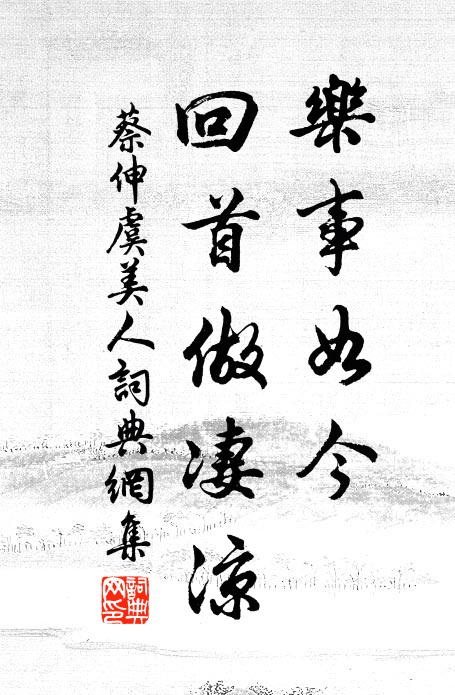 樂事如今
回首做凄涼
蔡伸虞美人詞典網集
詞典網印